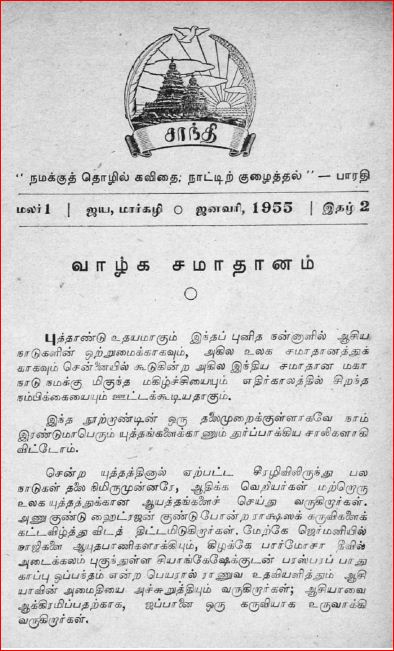 சாந்தி
" நமக்குத் தொழில் கவிதை; நாட்டிற் குழைத்தல் " — பாரதி
மலர் 1 | ஜய, மார்கழி ○ ஜனவரி, 1955 | இதழ் 2
வாழ்க சமாதானம்
புத்தாண்டு உதயமாகும் இந்தப் புனித நன்னாளில் ஆசிய
நாடுகளின் ஒற்றுமைக்காகவும், அகில உலக சமாதானத்துக்
காகவும் சென்னையில் கூடுகின்ற அகில இந்திய சமாதான மகா
நாடு நமக்கு மிகுந்த மகிழ்ச்சியையும் எதிர்காலத்தில் சிறந்த
நம்பிக்கையையும் ஊட்டக்கூடியதாகும்.
இந்த நூற்றாண்டின் ஒரு தலைமுறைக்குள்ளாகவே நாம்
இரண்டுமாபெரும் யுத்தங்களைக்காணும் துர்ப்பாக்கிய சாலிகளாகி
விட்டோம்.
சென்ற யுத்தத்தினால் ஏற்பட்ட சீரழிவிலிருந்து பல
நாடுகள் தலை நிமிருமுன்னரே, ஆதிக்க வெறியர்கள் மற்றொரு
உலக யுத்தத்துக்கான ஆயத்தங்களைச் செய்து வருகிறார்கள்.
அணுகுண்டு ஹைட்ரஜன் குண்டு போன்ற ராக்ஷஸக் கருவிகளைக்
கட்டவிழ்த்து விடத் திட்டமிடுகிறார்கள். மேற்கே ஜெர்மனியில்
நாஜிகளை ஆயுதபாணிகளாக்கியும், கிழக்கே பார்மோசா தீவில்
அடைக்கலம் புகுந்துள்ள சியாங்கேஷேக்குடன் பரஸ்பரப் பாது
காப்பு ஒப்பந்தம் என்ற பெயரால் ராணுவ உதவியளித்தும் ஆசி
யாவின் அமைதியை அச்சுறுத்தியும் வருகிறார்கள்; ஆசியாவை
ஆக்கிரமிப்பதற்காக, ஜப்பானை ஒரு கருவியாக உருவாக்கி
வருகிறார்கள்.